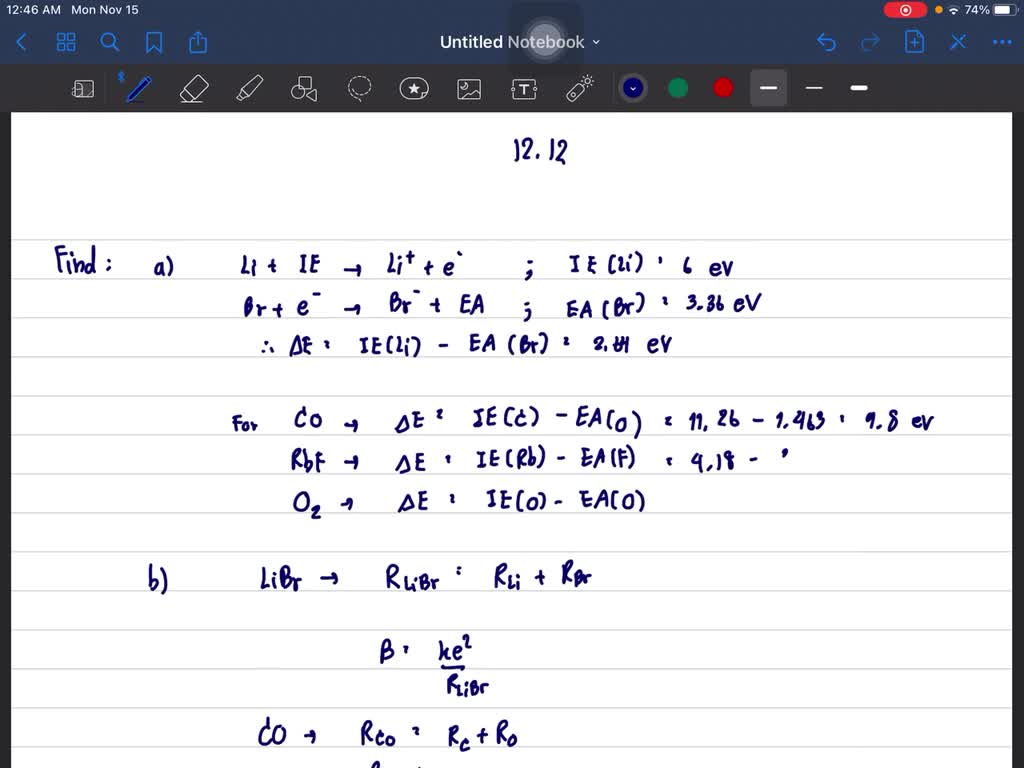 12:46 AM Mon Nov 15 74%
Untitled Notebook
12.12
Find: a) Li + IE → Li⁺ + e⁻ ; IE (Li) = 6 eV
Br + e⁻ → Br⁻ + EA ; EA (Br) = 3.36 eV
∴ ΔE = IE(Li) - EA (Br) = eV
For CO → ΔE = IE(C) - EA(O) = 11.26 - 1.463 = 9.8 eV
RbF → ΔE = IE(Rb) - EA(F) = 4.18 -
O₂ → ΔE = IE(O) - EA(O)
b) LiBr → R_LiBr = R_Li + R_Br
B = ke²
R_LiBr
CO → R_CO = R_C + R_O